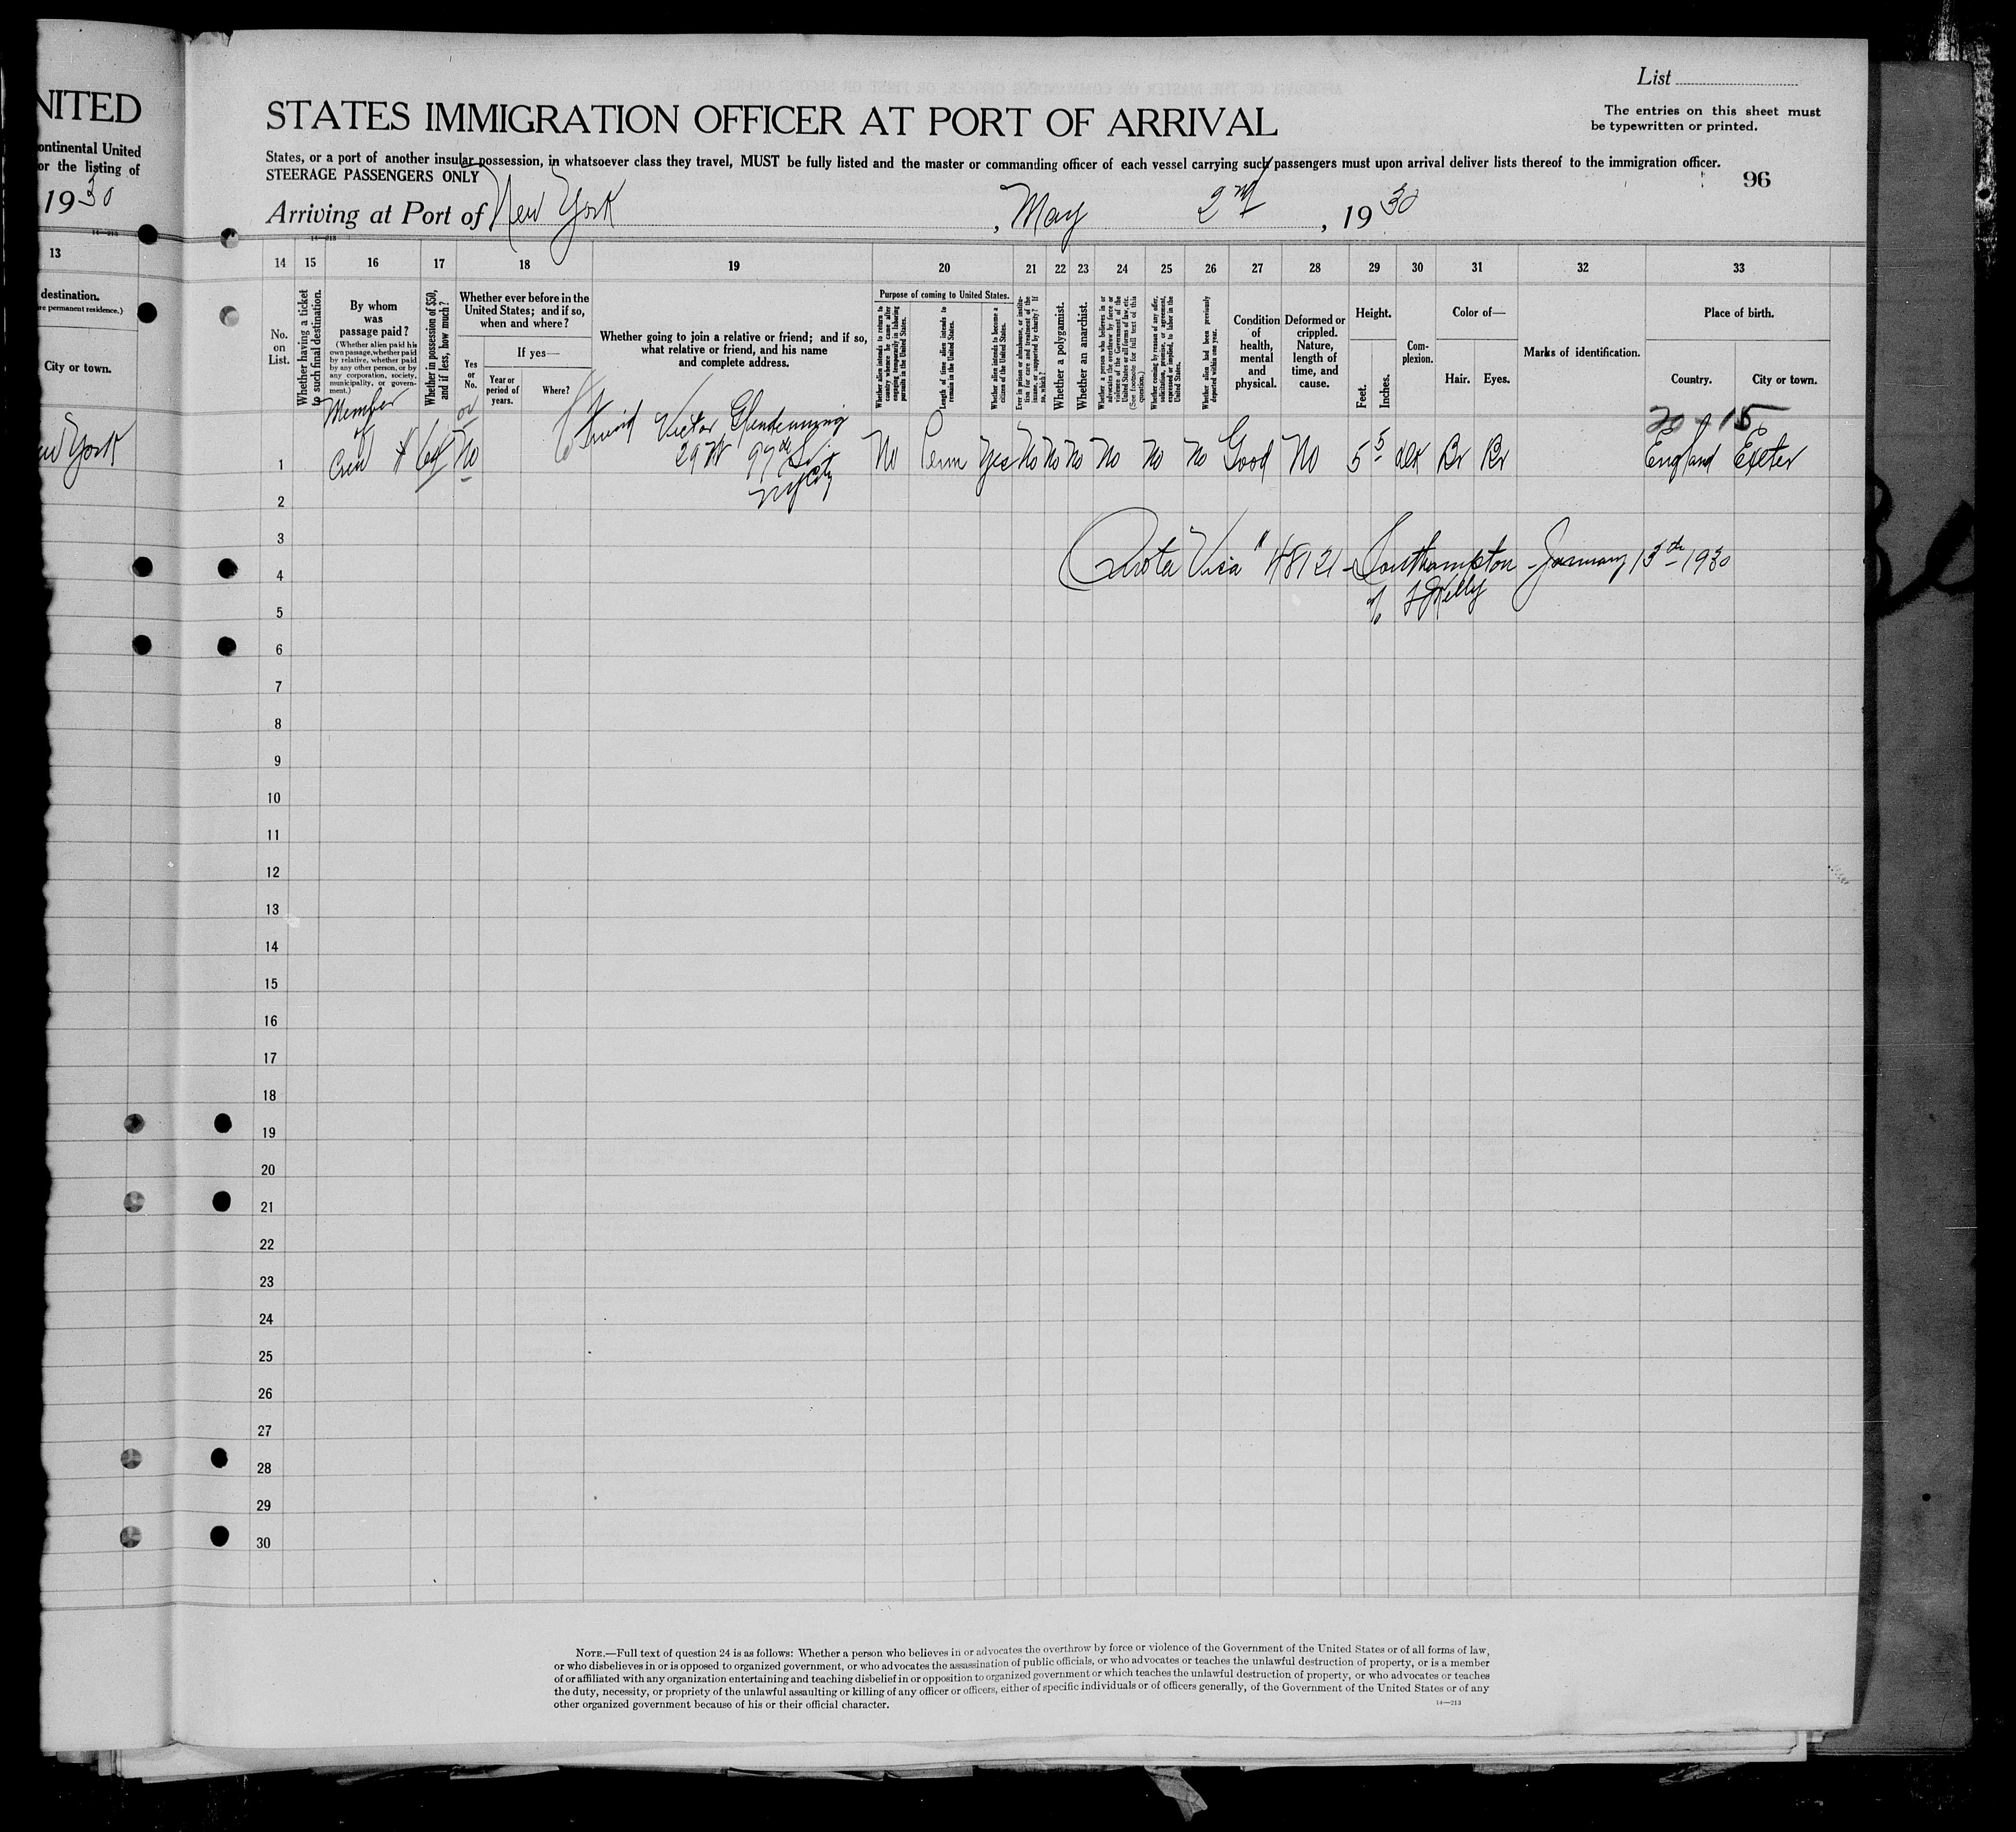 NITED
ontinental United
or the listing of
1930
14—213
13
destination.
re permanent residence.)
City or town.
ew York
List
STATES IMMIGRATION OFFICER AT PORT OF ARRIVAL
The entries on this sheet must
be typewritten or printed.
States, or a port of another insular possession, in whatsoever class they travel, MUST be fully listed and the master or commanding officer of each vessel carrying such passengers must upon arrival deliver lists thereof to the immigration officer.
STEERAGE PASSENGERS ONLY
96
Arriving at Port of New York, May 2nd, 1930
14—213
14 15 16 17 18 19 20 21 22 23 24 25 26 27 28 29 30 31 32 33
No.
on
List.
Whether having a ticket
to such final destination.
By whom
was
passage paid?
(Whether alien paid his
own passage, whether paid
by relative, whether paid
by any other person, or by
any corporation, society,
municipality, or govern-
ment.)
Whether in possession of $50,
and if less, how much?
Whether ever before in the
United States; and if so,
when and where?
Yes
or
No.
If yes—
Year or
period of
years.
Where?
Whether going to join a relative or friend; and if so,
what relative or friend, and his name
and complete address.
Purpose of coming to United States.
Whether alien intends to return to
country whence he came after
engaging temporarily in laboring
pursuits in the United States.
Length of time alien intends to
remain in the United States.
Whether alien intends to become a
citizen of the United States.
Ever in prison or almshouse, or institu-
tion for care and treatment of the
insane, or supported by charity? If
so, which?
Whether a polygamist.
Whether an anarchist.
Whether a person who believes in or
advocates the overthrow by force or
violence of the Government of the
United States or all forms of law, etc.
(See footnote for full text of this
question.)
Whether coming by reason of any offer,
solicitation, promise, or agreement,
expressed or implied, to labor in the
United States.
Whether alien had been previously
deported within one year.
Condition
of
health,
mental
and
physical.
Deformed or
crippled.
Nature,
length of
time, and
cause.
Height.
Feet.
Inches.
Com-
plexion.
Color of—
Hair.
Eyes.
Marks of identification.
Place of birth.
Country.
City or town.
20-15
1 Member
of
Crew $ 60 No Friend Victor Glendenning
29 W 97th St
NY City
No Perm Yes No No No No No No Good No 5 5 Br Br England Exeter
2
3
Quota Visa # 48121 - Southampton - January 13th 1930
4
5
6
7
8
9
10
11
12
13
14
15
16
17
18
19
20
21
22
23
24
25
26
27
28
29
30
NOTE.—Full text of question 24 is as follows: Whether a person who believes in or advocates the overthrow by force or violence of the Government of the United States or of all forms of law,
or who disbelieves in or is opposed to organized government, or who advocates the assassination of public officials, or who advocates or teaches the unlawful destruction of property, or is a member
of or affiliated with any organization entertaining and teaching disbelief in or opposition to organized government or which teaches the unlawful destruction of property, or who advocates or teaches
the duty, necessity, or propriety of the unlawful assaulting or killing of any officer or officers, either of specific individuals or of officers generally, of the Government of the United States or of any
other organized government because of his or their official character.
14—213